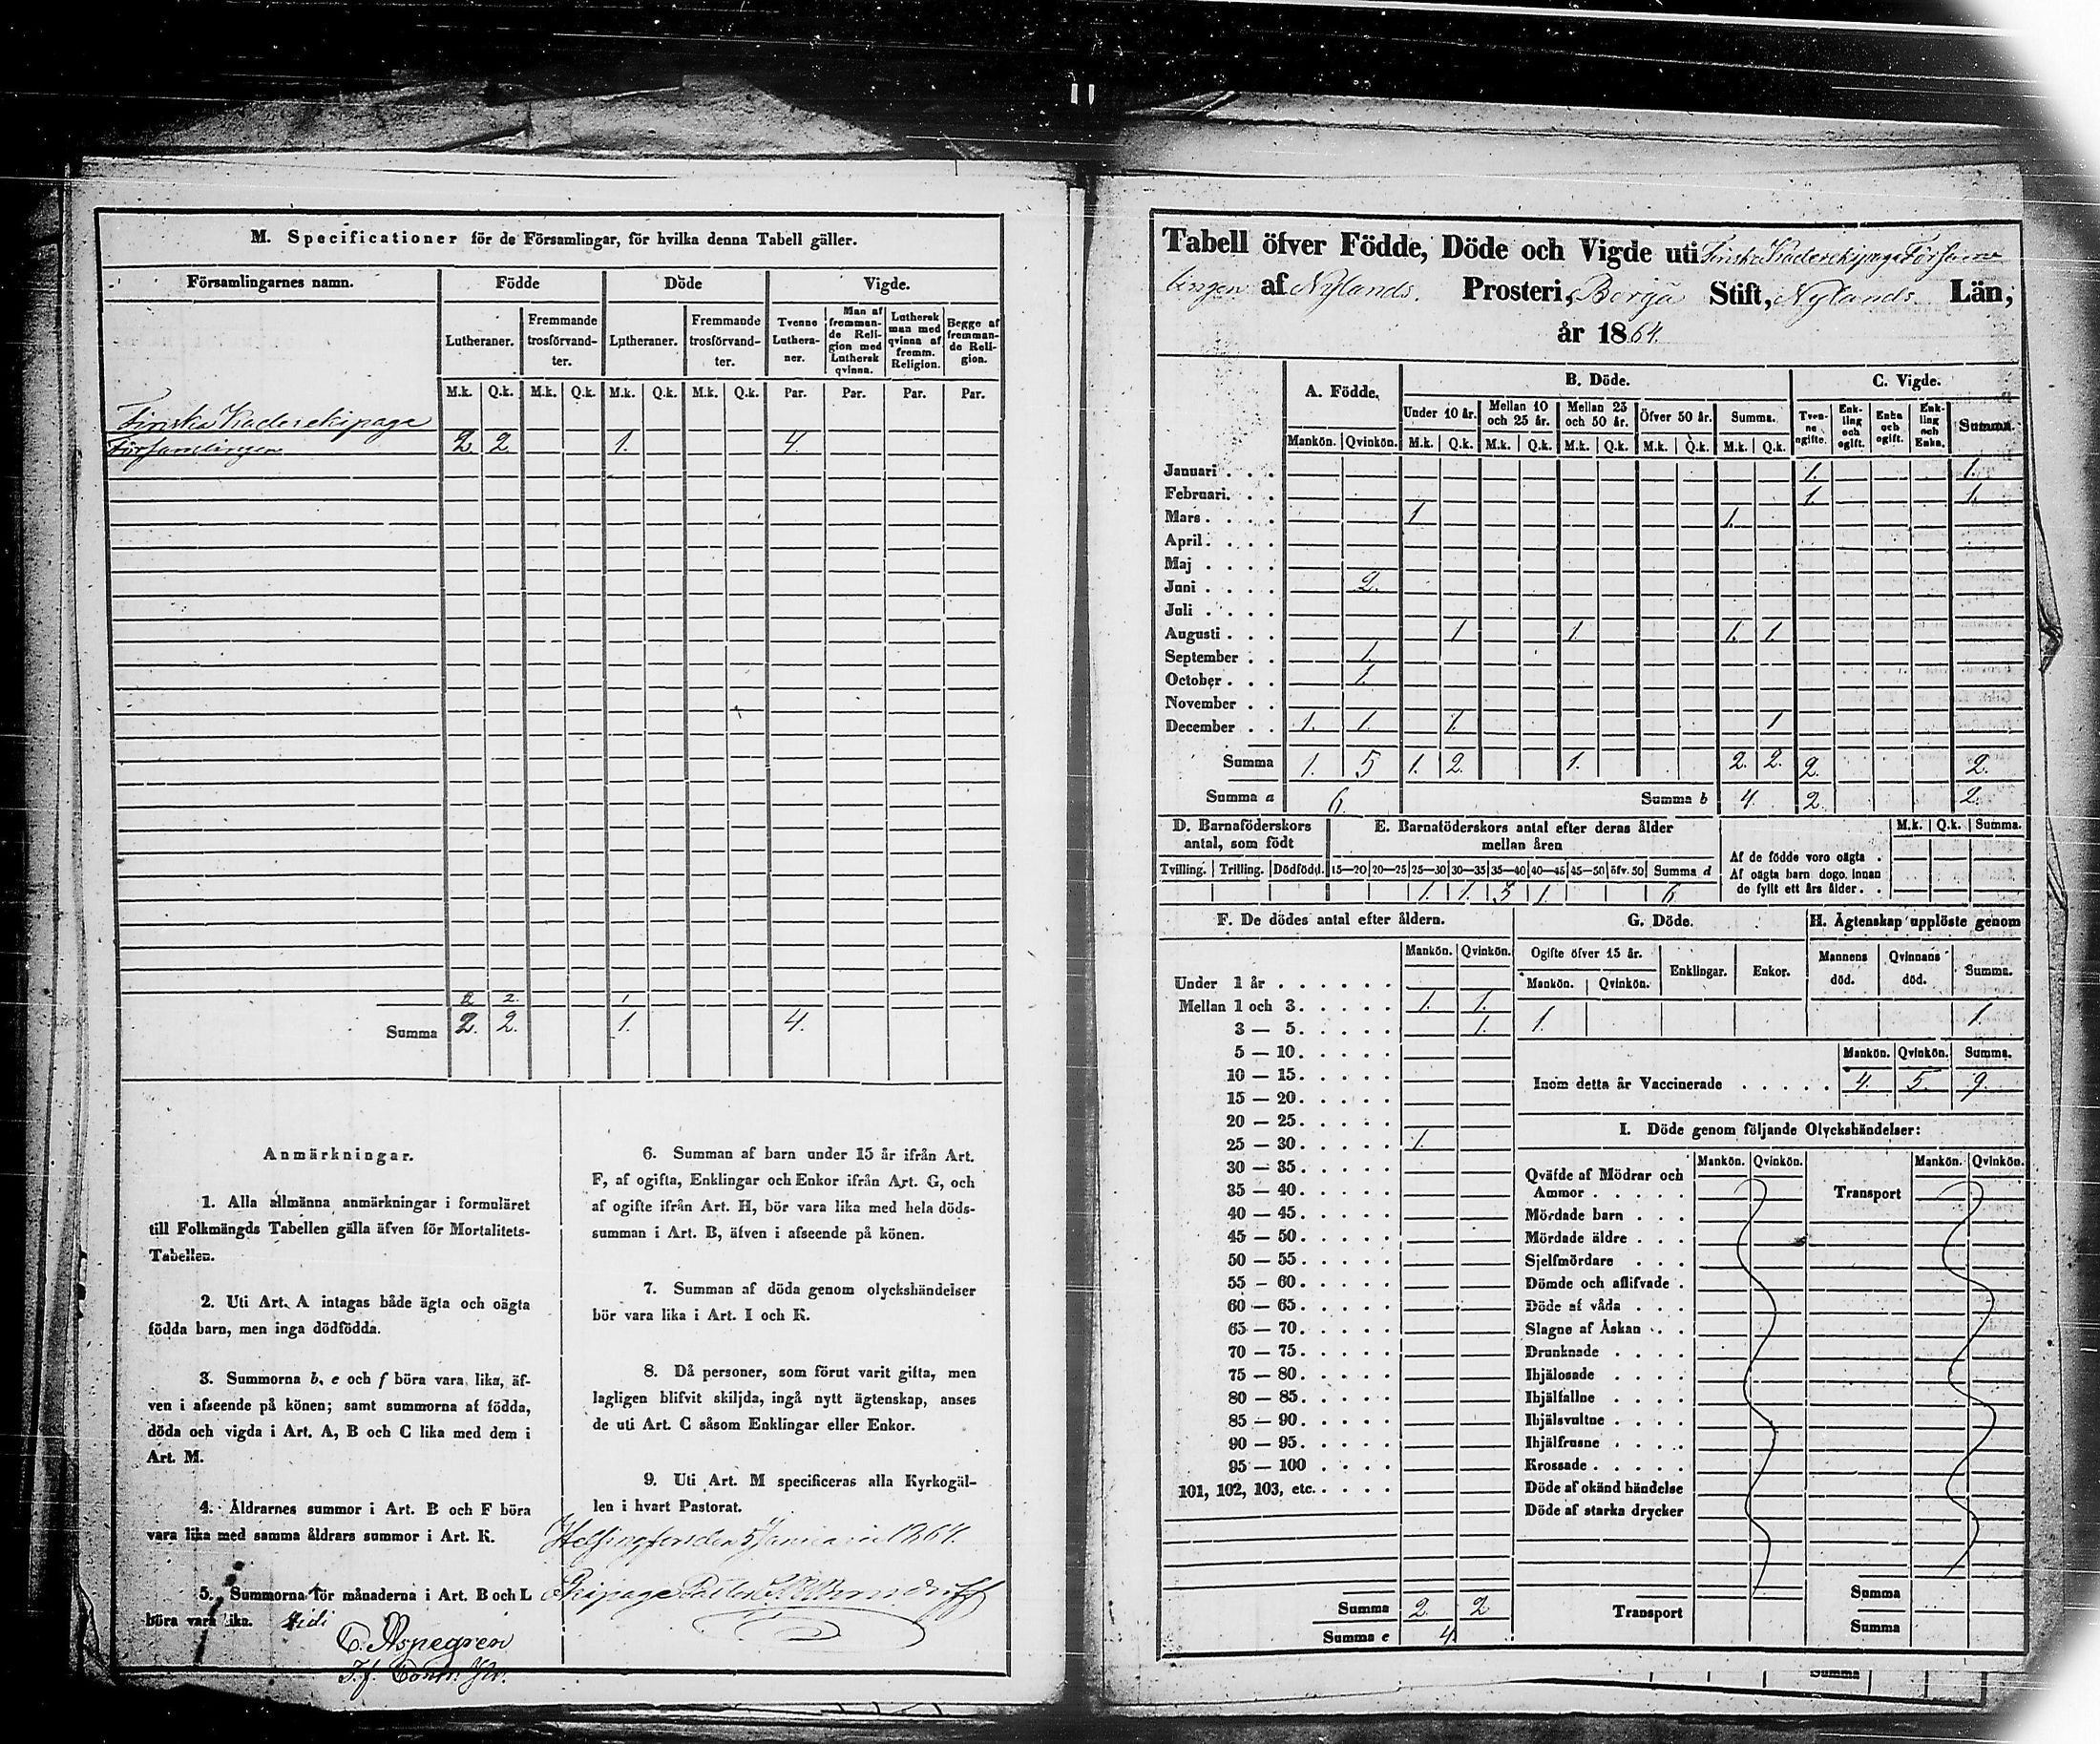 M. Specificationer för de Församlingar, för hvilka denna Tabell gäller.
Församlingarnes namn. Födde Döde Vigde.
Lutheraner. Fremmande trosförvandter. Lutheraner. Fremmande trosförvandter. Tvenne Lutheraner. Man af fremmande Religion med Luthersk qvinna. Luthersk man med qvinna af fremm. Religion. Begge af fremmande Religion.
M.k. Q.k. M.k. Q.k. M.k. Q.k. M.k. Q.k. Par. Par. Par. Par.
Finska Kaderekipage
Församlingen 2. 2. 1. 4.
2 2. 1
Summa 2. 2. 1. 4.
Anmärkningar.
1. Alla allmänna anmärkningar i formuläret
till Folkmängds Tabellen gälla äfven för Mortalitets-
Tabellen.
2. Uti Art. A intagas både ägta och oägta
födda barn, men inga dödfödda.
3. Summorna b, e och f böra vara lika, äf-
ven i afseende på könen; samt summorna af födda,
döda och vigda i Art. A, B och C lika med dem i
Art. M.
4. Åldrarnes summor i Art. B och F böra
vara lika med samma åldrars summor i Art. K.
5. Summorna för månaderna i Art. B och L
böra vara lika.
6. Summan af barn under 15 år ifrån Art.
F, af ogifta, Enklingar och Enkor ifrån Art. G, och
af ogifte ifrån Art. H, bör vara lika med hela döds-
summan i Art. B, äfven i afseende på könen.
7. Summan af döda genom olyckshändelser
bör vara lika i Art. I och K.
8. Då personer, som förut varit gifta, men
lagligen blifvit skiljda, ingå nytt ägtenskap, anses
de uti Art. C såsom Enklingar eller Enkor.
9. Uti Art. M specificeras alla Kyrkogäl-
len i hvart Pastorat.
Helsingfors den 5 Januari 1864.
Vidi
Aspegren
Tabell öfver Födde, Döde och Vigde uti Finska Kaderekipage Församlingen af Nylands. Prosteri, Borgå Stift, Nylands Län,
år 1864.
A. Födde. B. Döde. C. Vigde.
Under 10 år. Mellan 10 och 25 år. Mellan 25 och 50 år. Öfver 50 år. Summa. Tvenne ogifte. Enkling och ogift. Enka och ogift. Enkling och Enka. Summa.
Mankön. Qvinkön. M.k. Q.k. M.k. Q.k. M.k. Q.k. M.k. Q.k. M.k. Q.k.
Januari . . . 1. 1.
Februari. . . 1. 1.
Mars . . . . 1 1.
April . . . .
Maj . . . .
Juni . . . . 2.
Juli . . . .
Augusti . . . 1 1. 1. 1.
September . . 1.
October . . . 1.
November . .
December . . 1. 1. 1. 1
Summa 1. 5 1. 2. 1. 2. 2. 2. 2.
Summa a 6. Summa b 4. 2. 2.
D. Barnaföderskors antal, som födt
E. Barnaföderskors antal efter deras ålder mellan åren
M.k. Q.k. Summa.
Tvilling. Trilling. Dödfödd. 15—20 20—25 25—30 30—35 35—40 40—45 45—50 öfv. 50 Summa d
1. 1. 3 1. 6
Af de födde voro oägta .
Af oägta barn dogo, innan
de fyllt ett års ålder . .
F. De dödes antal efter åldern.
Mankön. Qvinkön.
Under 1 år . . . . . .
Mellan 1 och 3. . . . . 1. 1.
3 — 5. . . . . 1.
5 — 10. . . . .
10 — 15. . . . .
15 — 20. . . . .
20 — 25. . . . .
25 — 30. . . . . 1.
30 — 35. . . . .
35 — 40. . . . .
40 — 45. . . . .
45 — 50. . . . .
50 — 55. . . . .
55 — 60. . . . .
60 — 65. . . . .
65 — 70. . . . .
70 — 75. . . . .
75 — 80. . . . .
80 — 85. . . . .
85 — 90. . . . .
90 — 95. . . . .
95 — 100 . . . .
101, 102, 103, etc. . . . .
Summa 2. 2
Summa e 4
G. Döde.
Ogifte öfver 15 år. Enklingar. Enkor.
Mankön. Qvinkön.
1.
H. Ägtenskap upplöste genom
Mannens död. Qvinnans död. Summa.
1.
Mankön. Qvinkön. Summa.
Inom detta år Vaccinerade . . . . . 4. 5. 9.
I. Döde genom följande Olyckshändelser:
Mankön. Qvinkön. Mankön. Qvinkön.
Qväfde af Mödrar och
Ammor . . . . . Transport
Mördade barn . . .
Mördade äldre . . .
Sjelfmördare . . .
Dömde och aflifvade .
Döde af våda . . .
Slagne af Åskan . . .
Drunknade . . . .
Ihjälosade . . . .
Ihjälfallne . . . .
Ihjälsvultne . . . .
Ihjälfrusne . . . .
Krossade . . . . .
Döde af okänd händelse
Döde af starka drycker
Summa
Transport
Summa
Summa